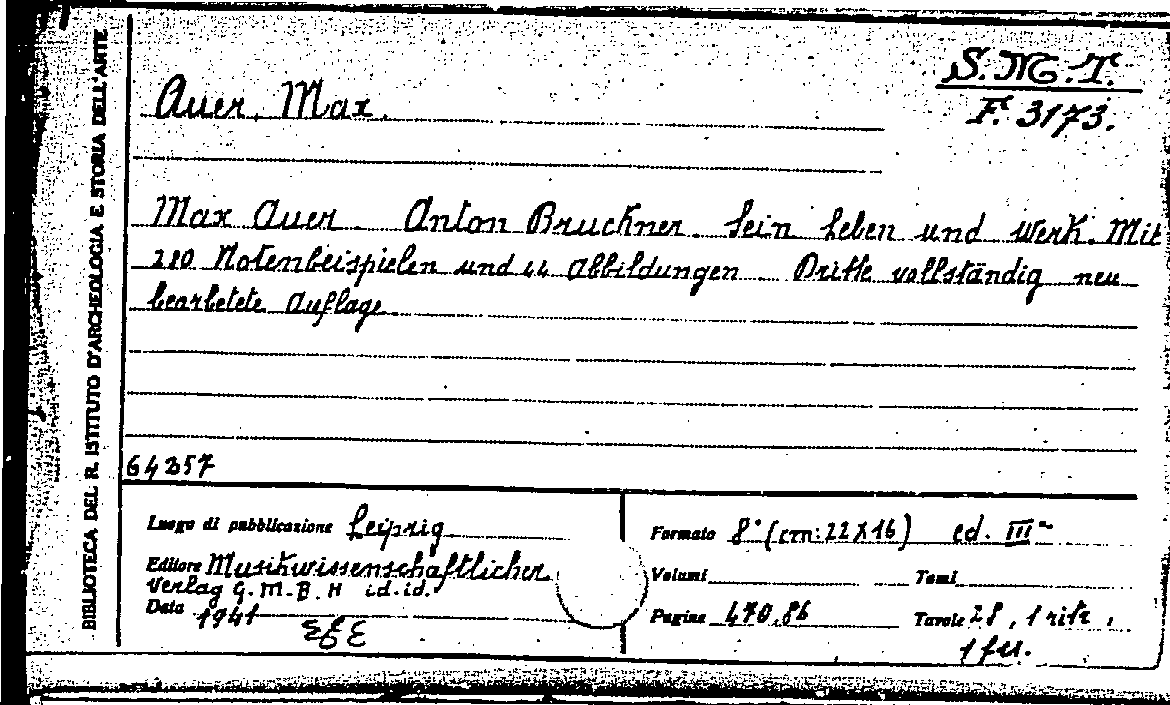 BIBLIOTECA DEL R. ISTITUTO D'ARCHEOLOGIA E STORIA DELL'ARTE
S.M.T.
F. 3173.
Auer, Max.
Max Auer. Anton Bruckner. Sein Leben und Werk. Mit
280 Notenbeispielen und 44 Abbildungen. Dritte vollständig neu
bearbetete Auflage.
64357
Luogo di pubblicazione Leipzig
Editore Musikwissenschaftlicher
Verlag G.M.B.H id.id.
Data 1941
Formato 8° (cm: 22 X 16) ed. III
Volumi Tomi
Pagine 470, 86 Tavole 28, 1 ritr,
1